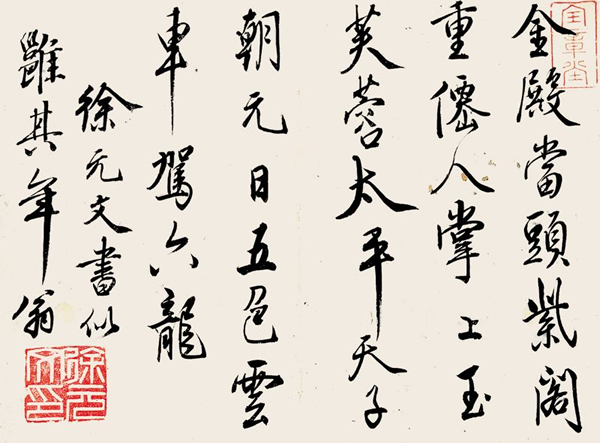 金殿當頭紫閣
重僊人掌上玉
芙蓉太平天子
朝元日五色雲
車駕六龍
徐元文書似
其年翁
徐元文印